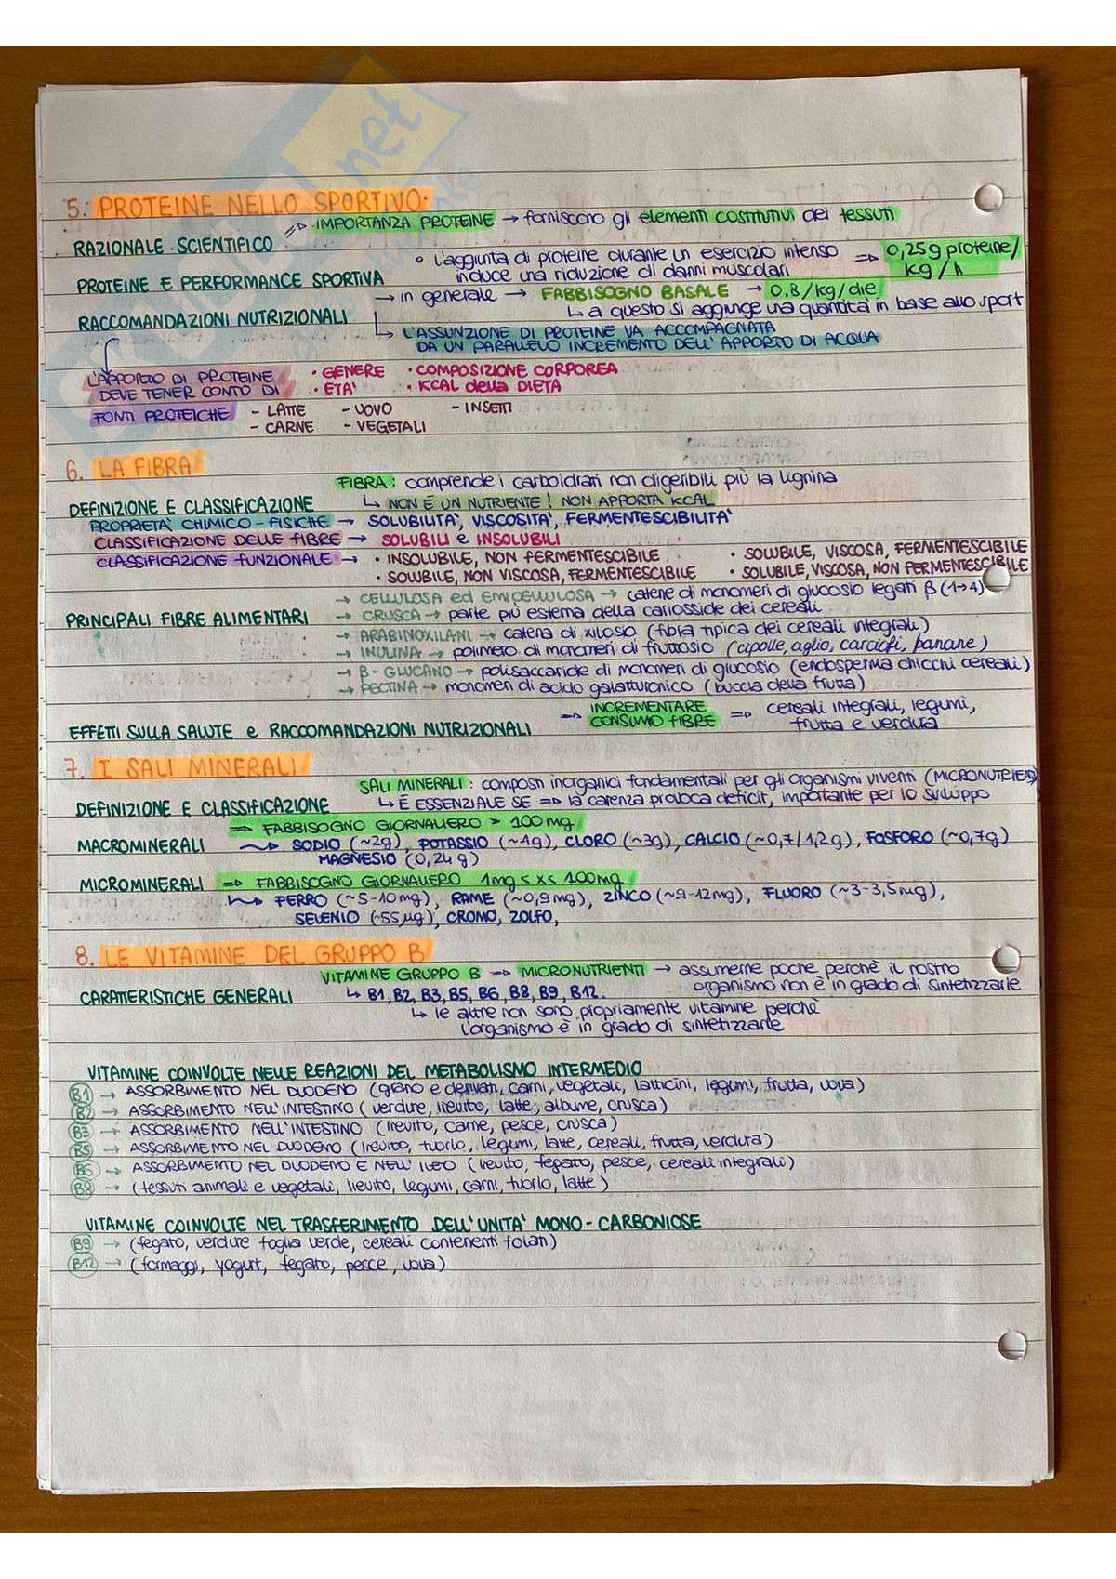 5. PROTEINE NELLO SPORTIVO.
RAZIONALE SCIENTIFICO => · IMPORTANZA PROTEINE → forniscono gli elementi costitutivi dei tessuti
PROTEINE E PERFORMANCE SPORTIVA ° L'aggiunta di proteine durante un esercizio intenso => 0,25g proteine/
induce una riduzione di danni muscolari kg/h
→ in generale → FABBISOGNO BASALE → 0.8/kg/die
RACCOMANDAZIONI NUTRIZIONALI ↳ a questo si aggiunge una quantità in base allo sport
↳ L'ASSUNZIONE DI PROTEINE VA ACCOMPAGNATA
DA UN PARALLELO INCREMENTO DELL'APPORTO DI ACQUA
L'APPORTO DI PROTEINE · GENERE · COMPOSIZIONE CORPOREA
DEVE TENER CONTO DI · ETA' · KCAL della DIETA
FONTI PROTEICHE - LATTE - UOVO - INSETTI
- CARNE - VEGETALI
6. LA FIBRA
FIBRA: comprende i carboidrati non digeribili più la lignina
DEFINIZIONE E CLASSIFICAZIONE ↳ NON È UN NUTRIENTE! NON APPORTA KCAL
PROPRIETA' CHIMICO-FISICHE → SOLUBILITA', VISCOSITA', FERMENTESCIBILITA'
CLASSIFICAZIONE DELLE FIBRE → SOLUBILI e INSOLUBILI
CLASSIFICAZIONE FUNZIONALE → · INSOLUBILE, NON FERMENTESCIBILE · SOLUBILE, VISCOSA, FERMENTESCIBILE
· SOLUBILE, NON VISCOSA, FERMENTESCIBILE · SOLUBILE, VISCOSA, NON FERMENTESCIBILE
→ CELLULOSA ed EMICELLULOSA → catene di monomeri di glucosio legati β (1→4)
PRINCIPALI FIBRE ALIMENTARI → CRUSCA → parte più esterna della cariosside dei cereali
→ ARABINOXILANI → catena di xilosio (fibra tipica dei cereali integrali)
→ INULINA → polimero di monomeri di fruttosio (cipolle, aglio, carciofi, banane)
→ β-GLUCANO → polisaccaride di monomeri di glucosio (endosperma chicchi cereali)
→ PECTINA → monomeri di acido galatturonico (buccia della frutta)
=> INCREMENTARE => cereali integrali, legumi,
EFFETTI SULLA SALUTE e RACCOMANDAZIONI NUTRIZIONALI CONSUMO FIBRE frutta e verdura
7. I SALI MINERALI
SALI MINERALI: composti inorganici fondamentali per gli organismi viventi (MICRONUTRIENTI)
DEFINIZIONE E CLASSIFICAZIONE ↳ È ESSENZIALE SE => la carenza provoca deficit, importante per lo sviluppo
=> FABBISOGNO GIORNALIERO > 100 mg
MACROMINERALI ~> SODIO (~2g), POTASSIO (~4g), CLORO (~3g), CALCIO (~0,7/1,2g), FOSFORO (~0,7g)
MAGNESIO (0,24g)
MICROMINERALI => FABBISOGNO GIORNALIERO 1mg < x < 100mg
~> FERRO (~5-10mg), RAME (~0,9mg), ZINCO (~9-12mg), FLUORO (~3-3,5mg),
SELENIO (~55µg), CROMO, ZOLFO,
8. LE VITAMINE DEL GRUPPO B
VITAMINE GRUPPO B => MICRONUTRIENTI → assumerne poche perchè il nostro
CARATTERISTICHE GENERALI ↳ B1, B2, B3, B5, B6, B8, B9, B12. organismo non è in grado di sintetizzarle
↳ le altre non sono propriamente vitamine perchè
l'organismo è in grado di sintetizzarle
VITAMINE COINVOLTE NELLE REAZIONI DEL METABOLISMO INTERMEDIO
B1 → ASSORBIMENTO NEL DUODENO (grano e derivati, carni, vegetali, latticini, legumi, frutta, uova)
B2 → ASSORBIMENTO NELL'INTESTINO (verdure, lievito, latte, albume, crusca)
B3 → ASSORBIMENTO NELL'INTESTINO (lievito, carne, pesce, crusca)
B5 → ASSORBIMENTO NEL DUODENO (lievito, tuorlo, legumi, latte, cereali, frutta, verdura)
B6 → ASSORBIMENTO NEL DUODENO E NELL'ILEO (lievito, fegato, pesce, cereali integrali)
B8 → (tessuti animali e vegetali, lievito, legumi, carni, tuorlo, latte)
VITAMINE COINVOLTE NEL TRASFERIMENTO DELL'UNITA' MONO-CARBONIOSE
B9 → (fegato, verdure foglia verde, cereali contenenti folati)
B12 → (formaggi, yogurt, fegato, pesce, uova)